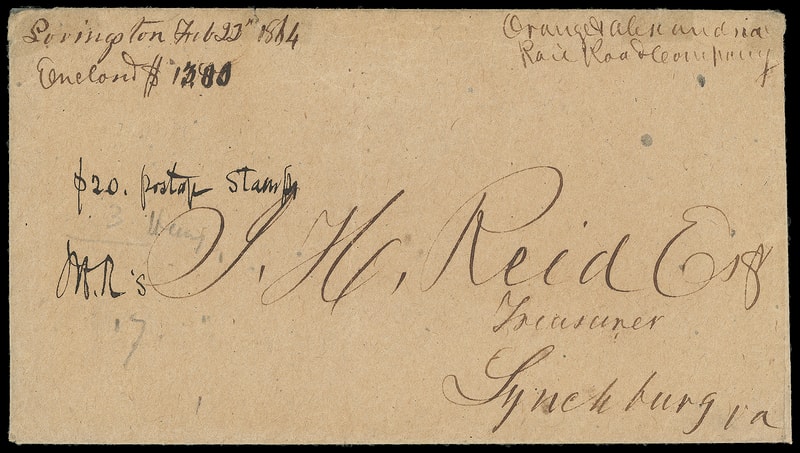 Lovingston Feb 22nd 1864
Enclosd $ 1300
Orange & alexandria
Rail Road Company
$20. postage Stamps
3
J. H. Reid Esq
M.R's
Treasurer
17
Lynchburg va